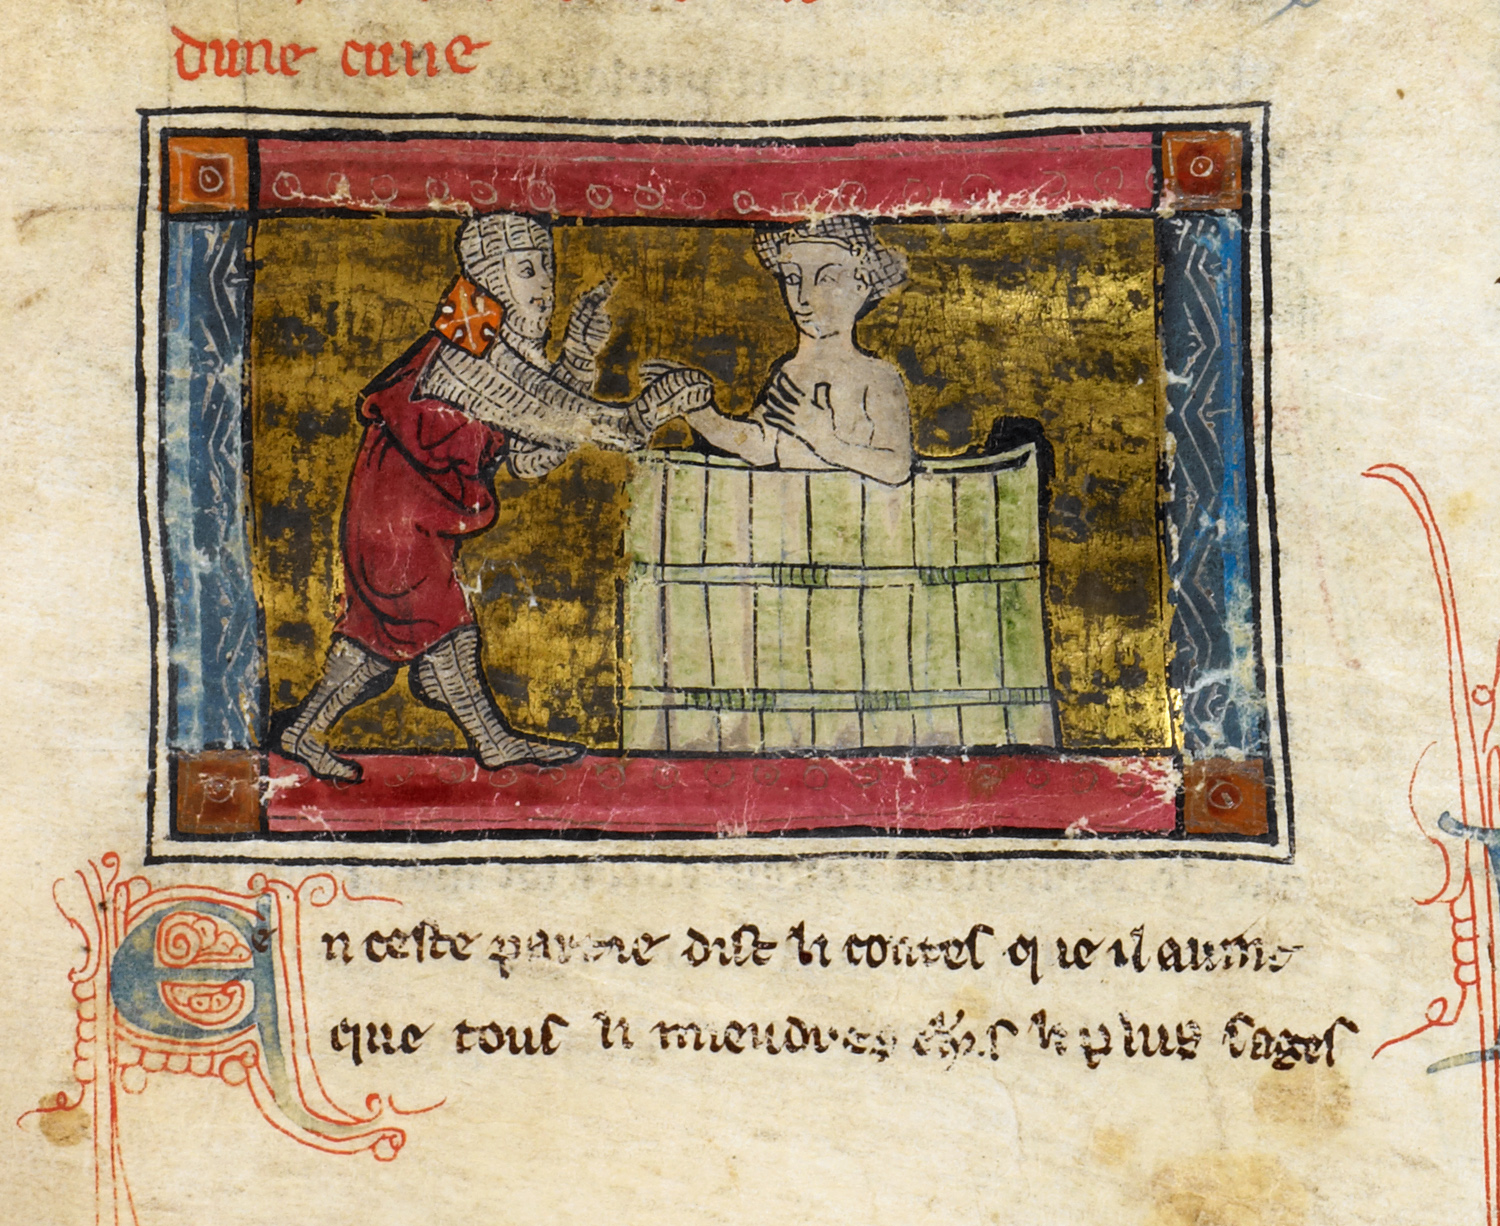 dune cuue
En ceste partie dist li contes que il auint
que tous li miendres li plus sages